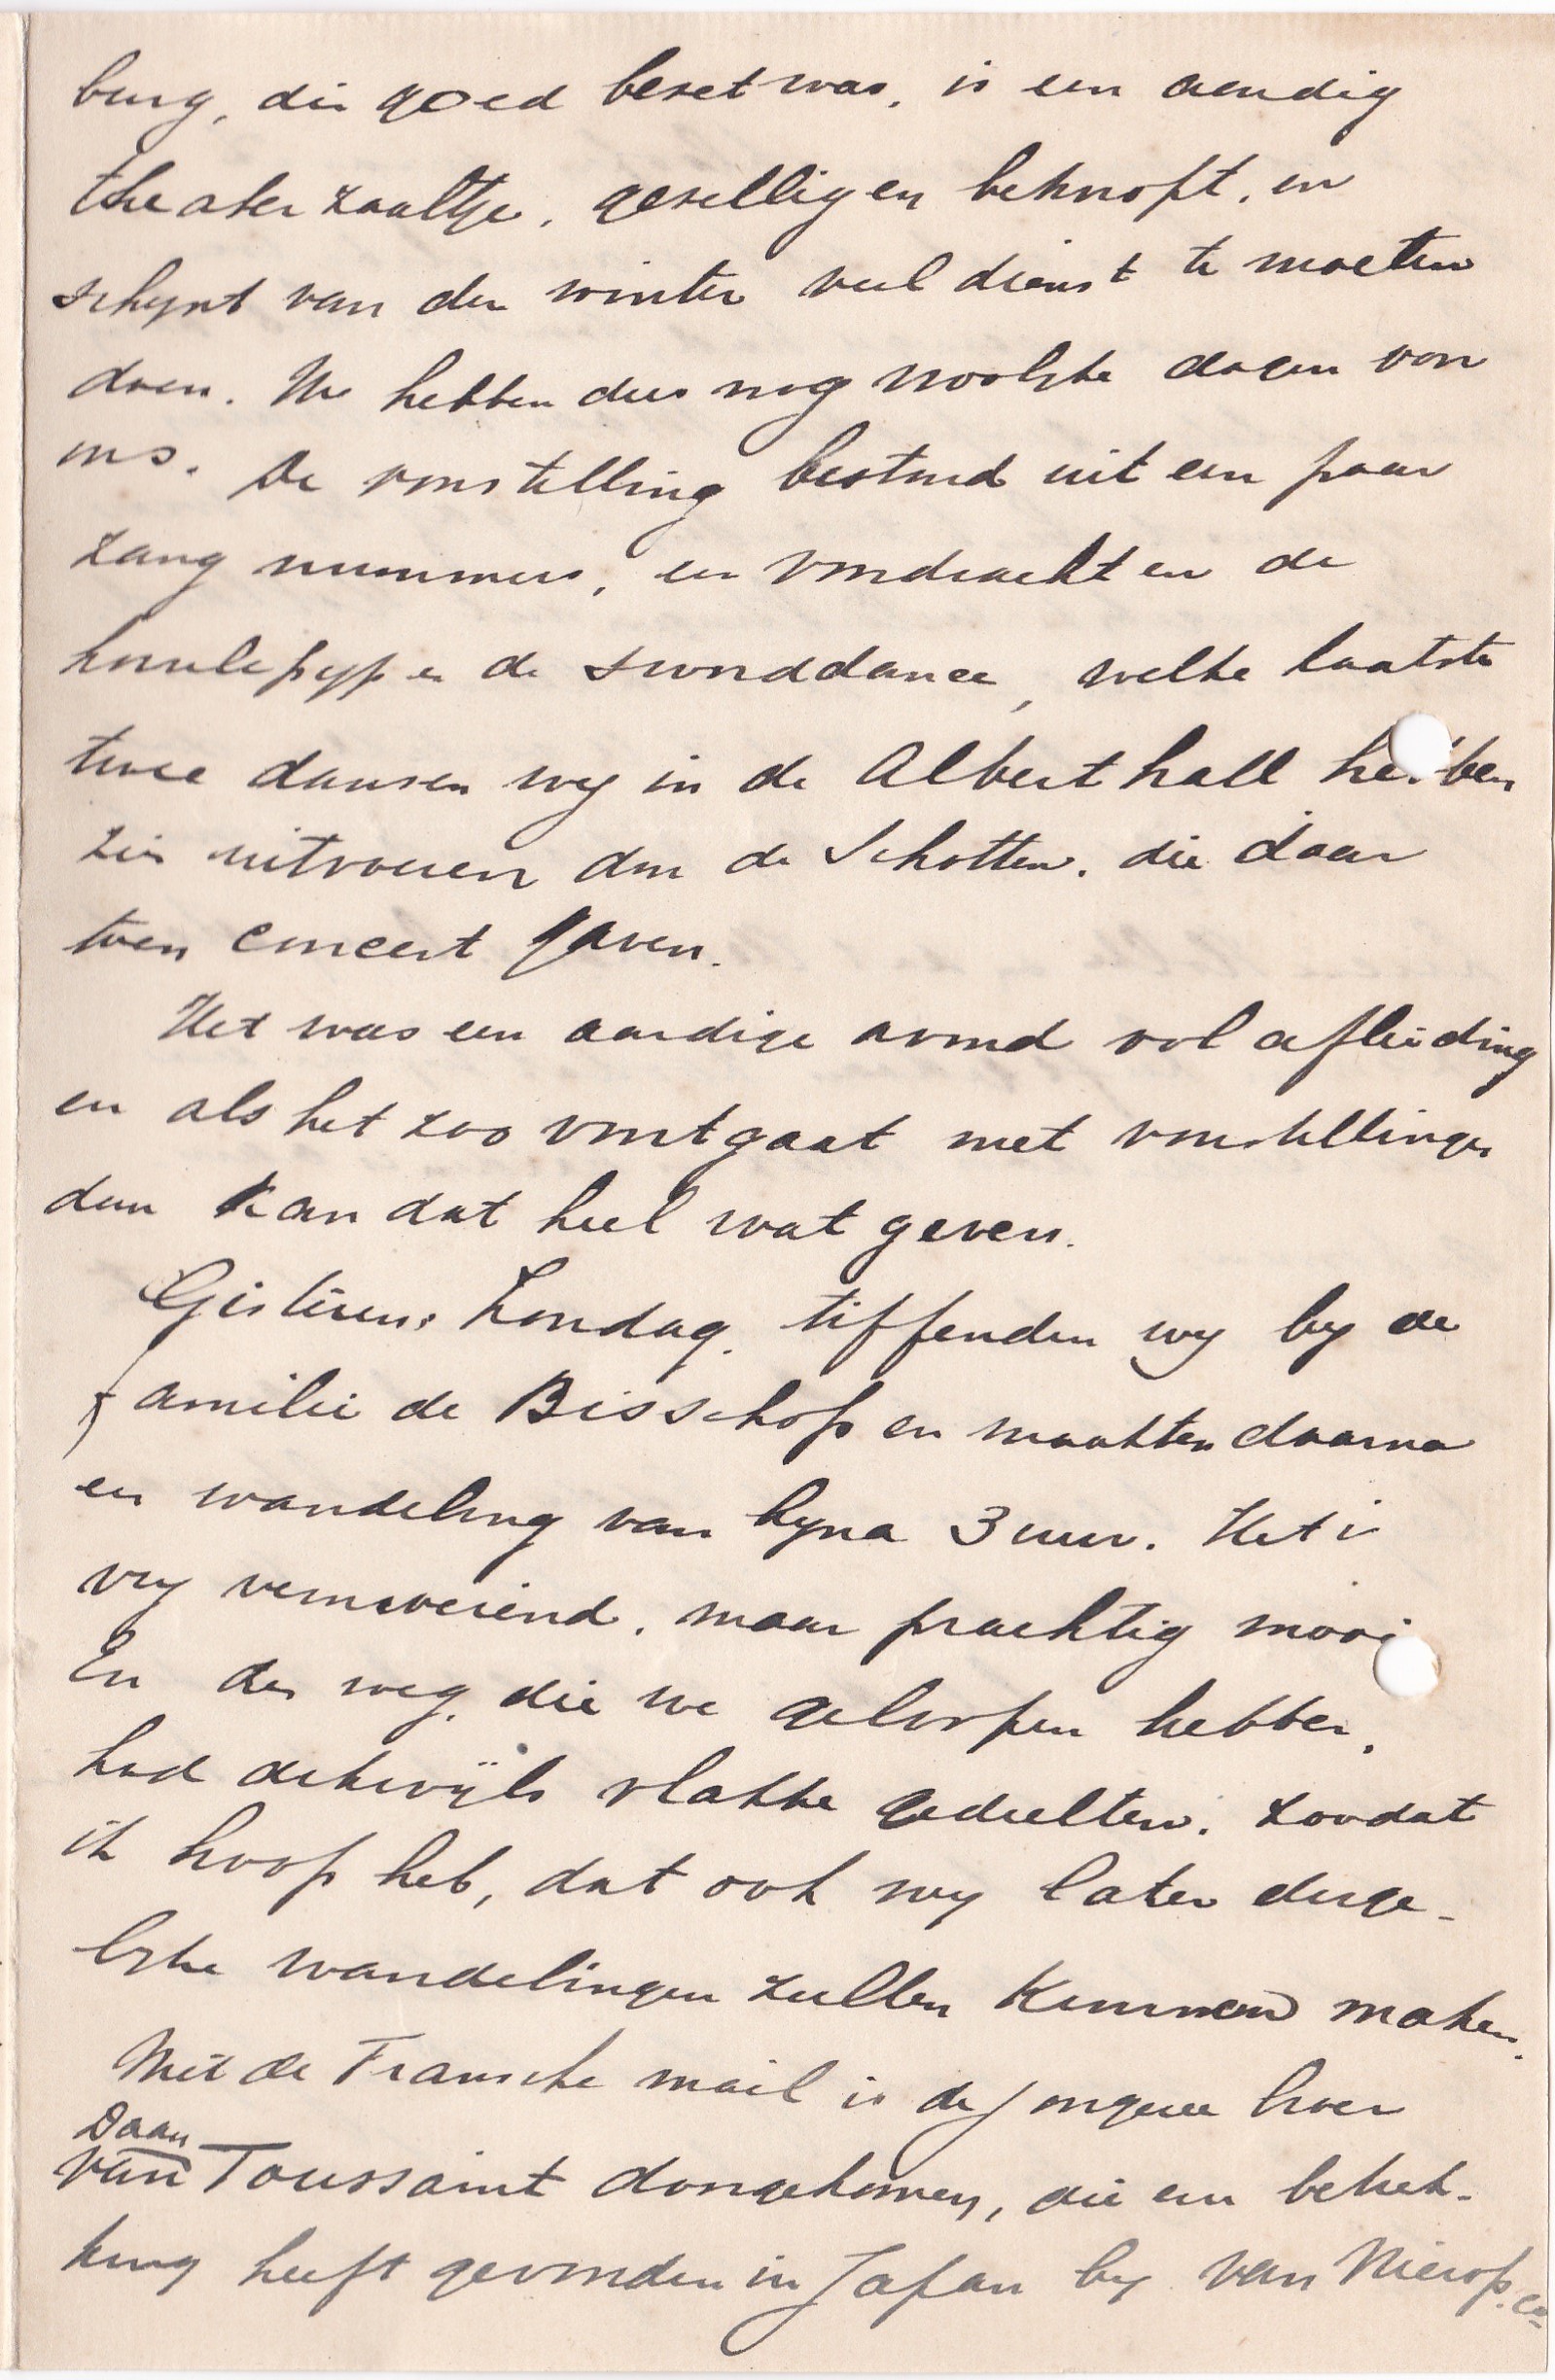 burg, die goed bezet was, is een aardig
theater zaaltje, gezellig en beknopt, en
schynt van den winter veel dienst te moeten
doen. We hebben dus nog woelike dagen voor
ons. De voorstelling bestond uit een paar
zang nummers, een voordracht en de
hornlepyp en de sworddance, welke laatste
twee dansen wy in de Albert hall hebben
zien uitvoeren door de Schotten, die daar
toen concert gaven.
Het was een aardige avond vol afleiding
en als het zoo voortgaat met voorstellingen
dan kan dat heel wat geven.
Gisteren, Zondag, tiffenden wy by de
familie de Bisschop en maakten daarna
een wandeling van byna 3 uur. Het is
vry vermoeiend, maar prachtig mooi
En de weg, die we geloopen hebben,
had dikwijls vlakke gedeelten, zoodat
ik hoop heb, dat ook wy later derge-
lyke wandelingen zullen kunnen maken.
Met de Fransche mail is de jongere broer
Daan
van Toussaint doorgekomen, die een betrek-
king heeft gevonden in Japan by van Nierop. Co